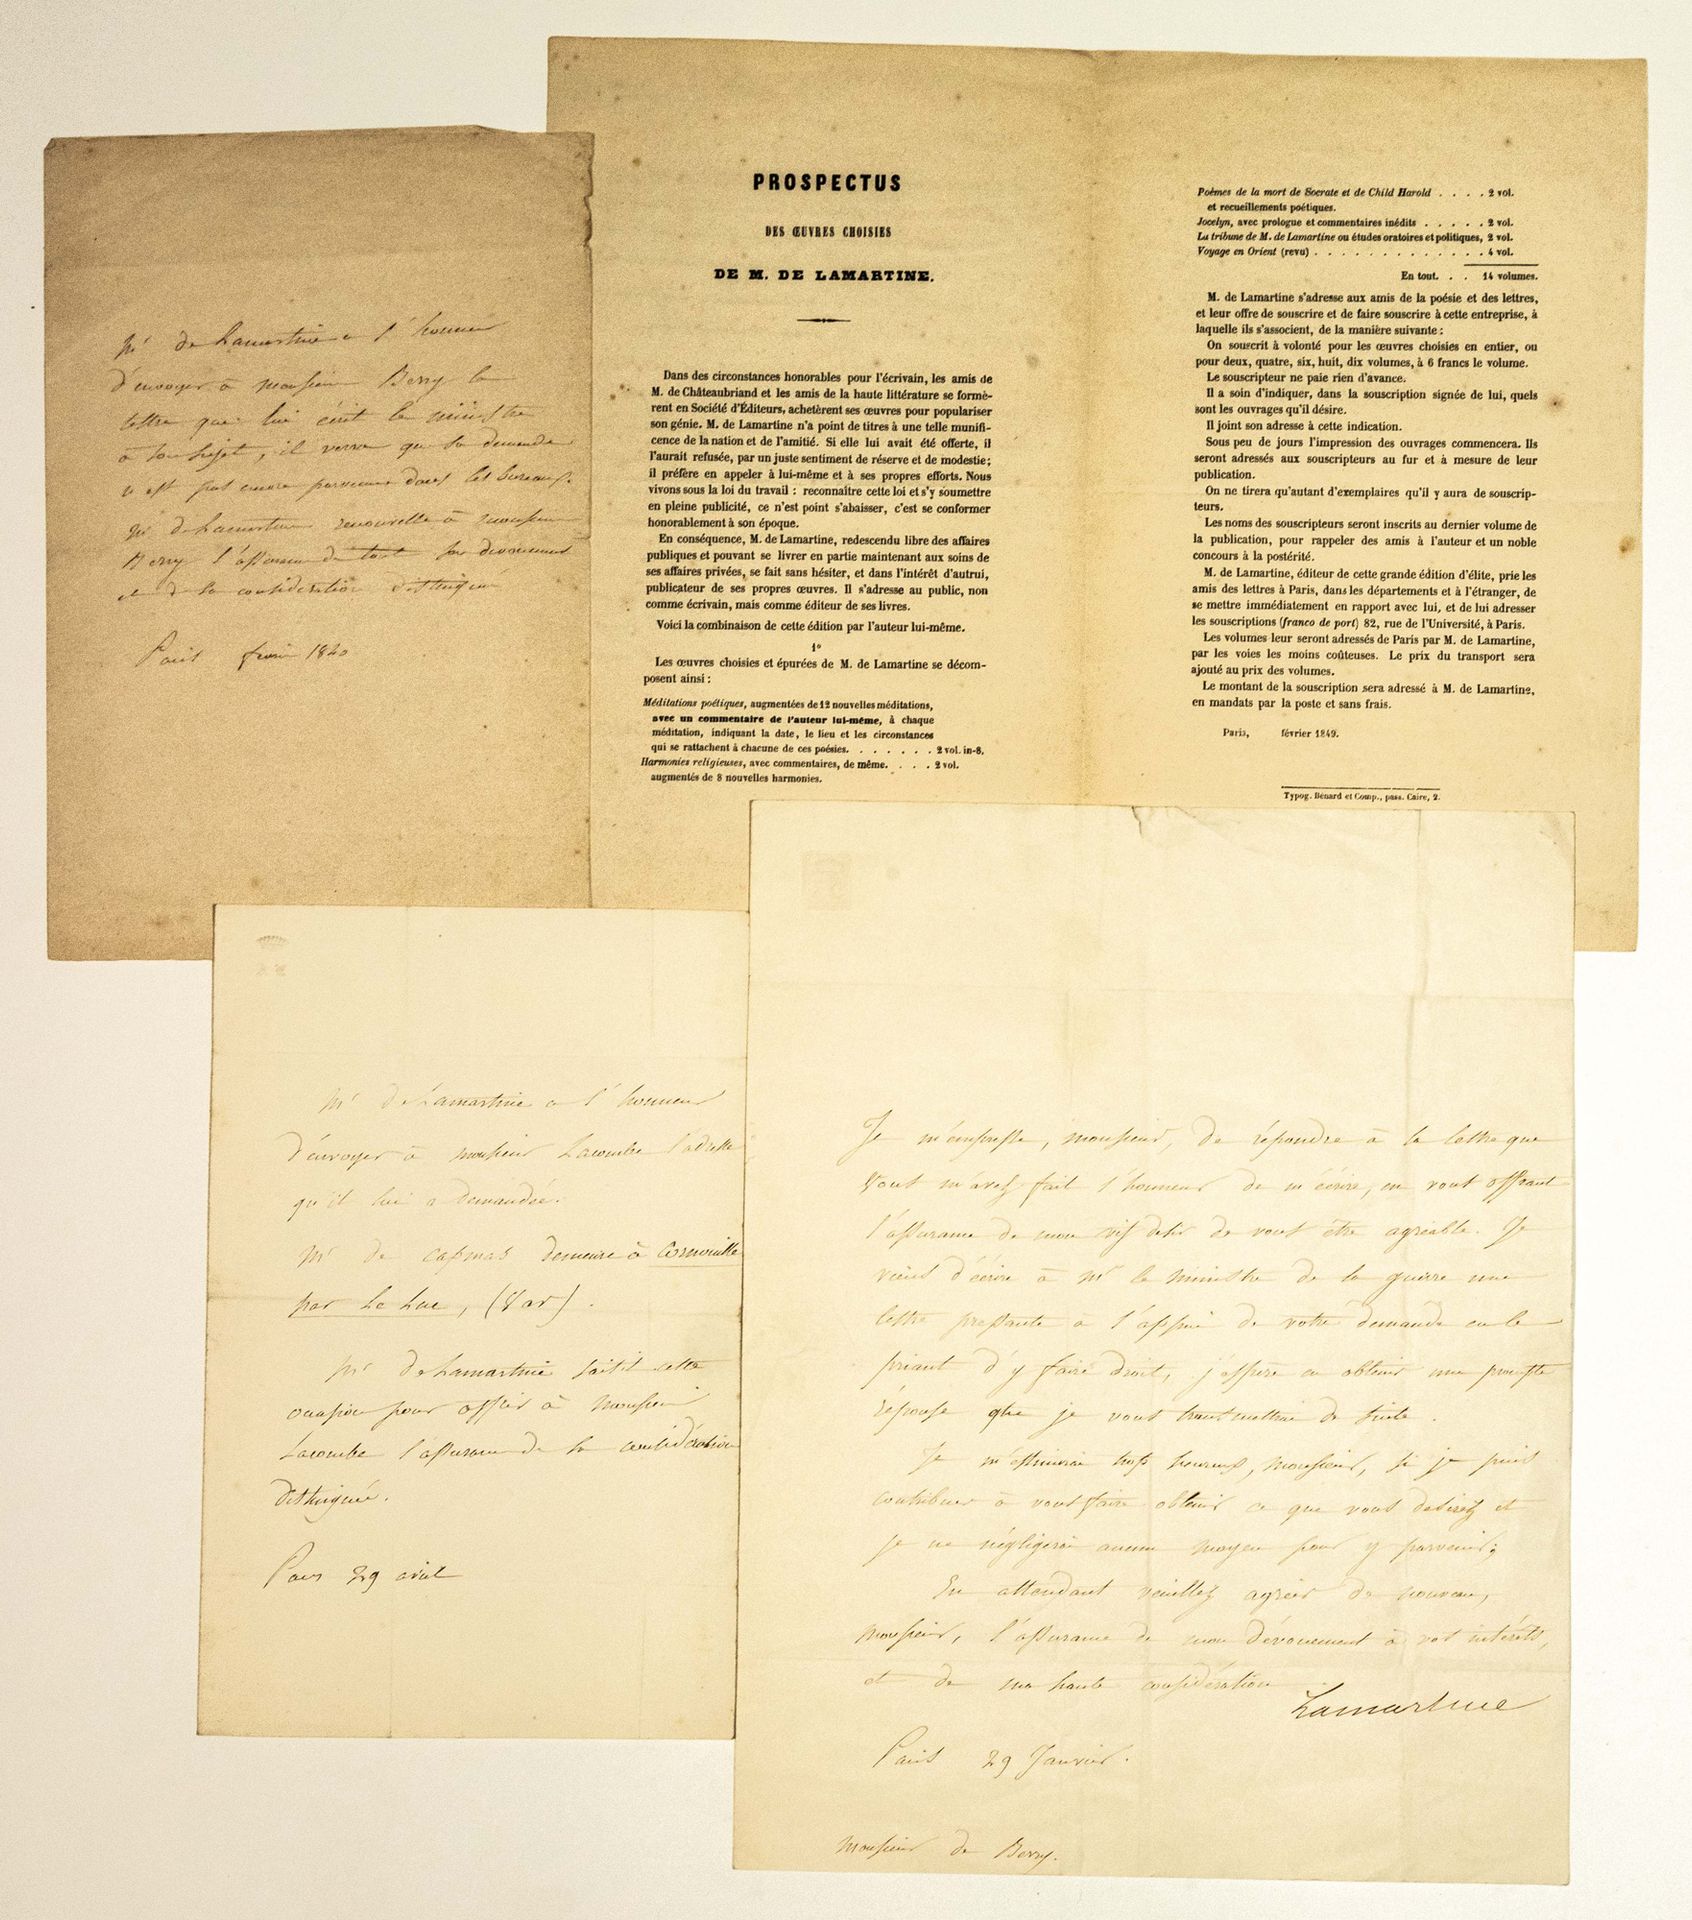 Mr de Lamartine a l'honneur
d'envoyer à monsieur Berry la
lettre que lui écrit le ministre
à son sujet, il verra que sa demande
n'est pas encore parvenue dans les bureaux.
Mr de Lamartine renouvelle à monsieur
Berry l'assurance de tout son dévouement
et de sa considération distinguée
Paris février 1840
PROSPECTUS
DES ŒUVRES CHOISIES
DE M. DE LAMARTINE.
Dans des circonstances honorables pour l'écrivain, les amis de
M. de Châteaubriand et les amis de la haute littérature se formè-
rent en Société d'Éditeurs, achetèrent ses œuvres pour populariser
son génie. M. de Lamartine n'a point de titres à une telle munifi-
cence de la nation et de l'amitié. Si elle lui avait été offerte, il
l'aurait refusée, par un juste sentiment de réserve et de modestie;
il préfère en appeler à lui-même et à ses propres efforts. Nous
vivons sous la loi du travail : reconnaître cette loi et s'y soumettre
en pleine publicité, ce n'est point s'abaisser, c'est se conformer
honorablement à son époque.
En conséquence, M. de Lamartine, redescendu libre des affaires
publiques et pouvant se livrer en partie maintenant aux soins de
ses affaires privées, se fait sans hésiter, et dans l'intérêt d'autrui,
publicateur de ses propres œuvres. Il s'adresse au public, non
comme écrivain, mais comme éditeur de ses livres.
Voici la combinaison de cette édition par l'auteur lui-même.
1°
Les œuvres choisies et épurées de M. de Lamartine se décom-
posent ainsi :
Méditations poétiques, augmentées de 12 nouvelles méditations,
avec un commentaire de l'auteur lui-même, à chaque
méditation, indiquant la date, le lieu et les circonstances
qui se rattachent à chacune de ces poésies. . . . . . . 2 vol. in-8.
Harmonies religieuses, avec commentaires, de même. . . . 2 vol.
augmentés de 8 nouvelles harmonies.
Poèmes de la mort de Socrate et de Child Harold . . . . 2 vol.
et recueillements poétiques.
Jocelyn, avec prologue et commentaires inédits . . . . . 2 vol.
La tribune de M. de Lamartine ou études oratoires et politiques, 2 vol.
Voyage en Orient (revu) . . . . . . . . . . . . . 4 vol.
En tout. . . 14 volumes.
M. de Lamartine s'adresse aux amis de la poésie et des lettres,
et leur offre de souscrire et de faire souscrire à cette entreprise, à
laquelle ils s'associent, de la manière suivante :
On souscrit à volonté pour les œuvres choisies en entier, ou
pour deux, quatre, six, huit, dix volumes, à 6 francs le volume.
Le souscripteur ne paie rien d'avance.
Il a soin d'indiquer, dans la souscription signée de lui, quels
sont les ouvrages qu'il désire.
Il joint son adresse à cette indication.
Sous peu de jours l'impression des ouvrages commencera. Ils
seront adressés aux souscripteurs au fur et à mesure de leur
publication.
On ne tirera qu'autant d'exemplaires qu'il y aura de souscrip-
teurs.
Les noms des souscripteurs seront inscrits au dernier volume de
la publication, pour rappeler des amis à l'auteur et un noble
concours à la postérité.
M. de Lamartine, éditeur de cette grande édition d'élite, prie les
amis des lettres à Paris, dans les départements et à l'étranger, de
se mettre immédiatement en rapport avec lui, et de lui adresser
les souscriptions (franco de port) 82, rue de l'Université, à Paris.
Les volumes leur seront adressés de Paris par M. de Lamartine,
par les voies les moins coûteuses. Le prix du transport sera
ajouté au prix des volumes.
Le montant de la souscription sera adressé à M. de Lamartine,
en mandats par la poste et sans frais.
Paris, février 1849.
Typog. Bénard et Comp., pass. Caire, 2.
Mr de Lamartine a l'honneur
d'envoyer à monsieur Lacombe l'adresse
qu'il lui a demandée.
Mr de Capmas demeure à Cornouille
par Le Luc, (Var).
Mr de Lamartine saisit cette
occasion pour offrir à monsieur
Lacombe l'assurance de sa considération
distinguée.
Paris 29 avril
Je m'empresse, monsieur, de répondre à la lettre que
vous m'avez fait l'honneur de m'écrire, en vous offrant
l'assurance de mon vif désir de vous être agréable. Je
viens d'écrire à Mr le ministre de la guerre une
lettre pressante à l'appui de votre demande en le
priant d'y faire droit, j'espère en obtenir une prompte
réponse que je vous transmettrai de suite.
Je m'estimerai trop heureux, monsieur, si je puis
contribuer à vous faire obtenir ce que vous desirez et
je ne négligerai aucun moyen pour y parvenir;
En attendant veuillez agréer de nouveau,
monsieur, l'assurance de mon dévouement à vos intérêts,
et de ma haute considération
Lamartine
Paris 29 Janvier.
Monsieur de Berry.